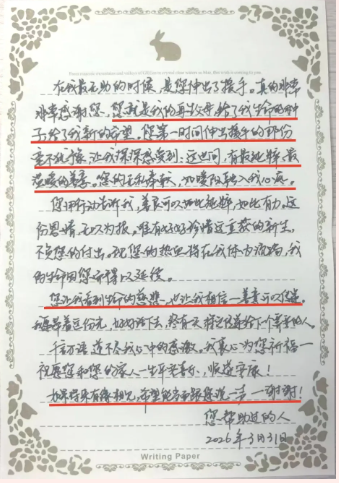 在我最无助的时候,是您伸出了援手。真的非常
非常感谢您,您就是我的再生父母给了我生命的种
子,给了我新的希望。您第一时间伸出援手的那份
毫不犹豫,让我深深感受到:这世间,有最纯粹、最
温暖的善意。您的无私奉献,如暖阳融入我心底。
您用行动告诉我,善良可以如此纯粹,如此有力。这
份恩情,无以为报,唯有好好珍惜这重获的新生,
不负您的付出。您的热血将在我体内流淌,我
的生命因您而得以延续。
您让我看到生命的慈悲,也让我相信—善意可以传递。
我愿带着这份光,好好活下去,终有一天将它传递给下一个需要的人。
千言万语道不尽我心中的感激,我衷心为您祈福—
祝愿您和您的家人一生平安喜乐,顺遂安康!
如果将来有缘相见,希望能亲口跟您说一声—谢谢!
您帮助过的人
2026年3月31日
Writing Paper